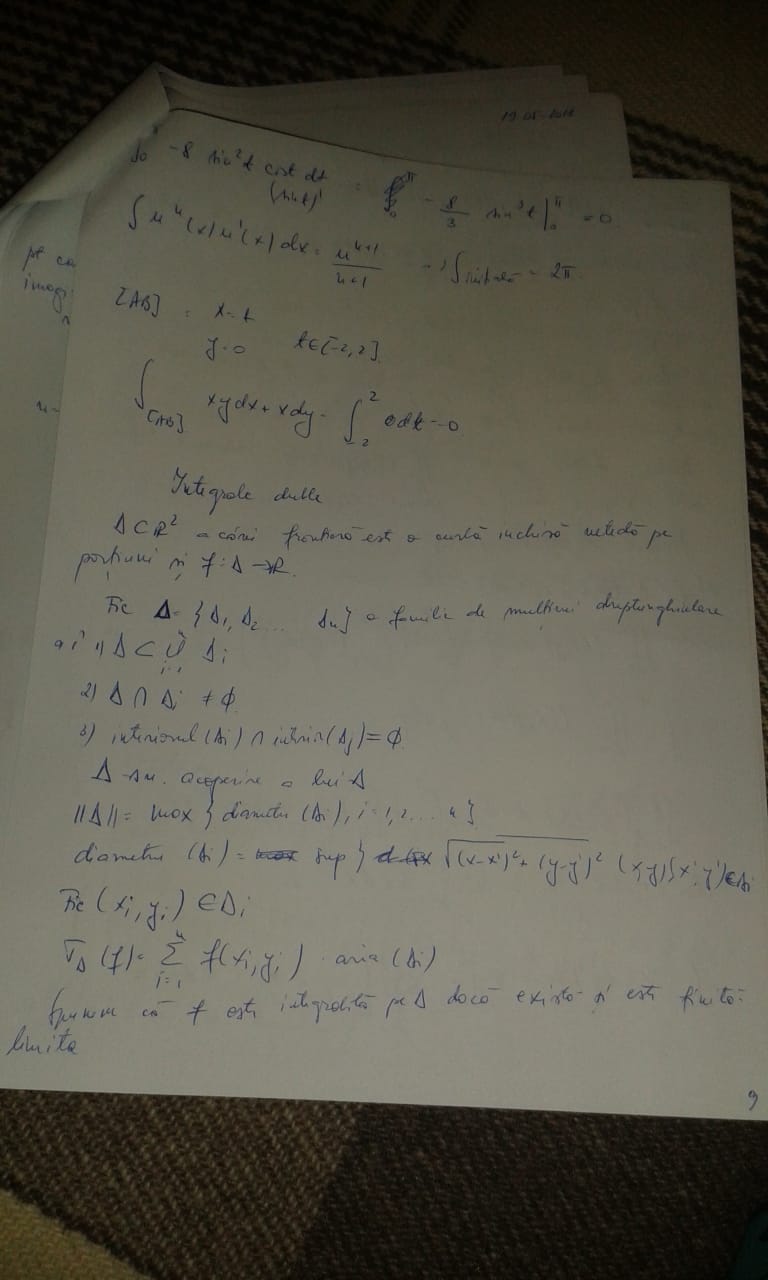 19.05.2012
∫₀^π -8 sin²t cost dt = - 8/3 sin³t |₀^π = 0
(sint)'
∫ uⁿ(x) u'(x) dx = uⁿ⁺¹/n+1 → ∫ = 2π
pt
[AB] : x = t
y = 0 t∈[-2,2]
∫[AB] xydx + xdy = ∫₋₂² 0dt = 0
Integrale duble
Δ⊂R² a cărei frontieră este o curbă închisă netedă pe
porțiuni și f: Δ→R.
Fie Δ = {Δ1, Δ2 ... Δn} o familie de mulțimi dreptunghiulare
aî 1) Δ ⊂ ⋃ᵢ₌₁ⁿ Δi
2) Δ ∩ Δi ≠ ∅
3) interiorul (Δi) ∩ interior(Δj) = ∅
Δ s.n. acoperire a lui Δ
||Δ|| = max { diametru (Δi), i = 1,2 ... n }
diametru (Δi) = sup { √(x-x')² + (y-y')² (x,y)(x',y')∈Δi
Fie (xi, yi) ∈ Δi
σΔ (f) = Σᵢ₌₁ⁿ f(xi, yi) · aria (Δi)
Spunem că f este integrabilă pe Δ dacă există și este finită
limita
9